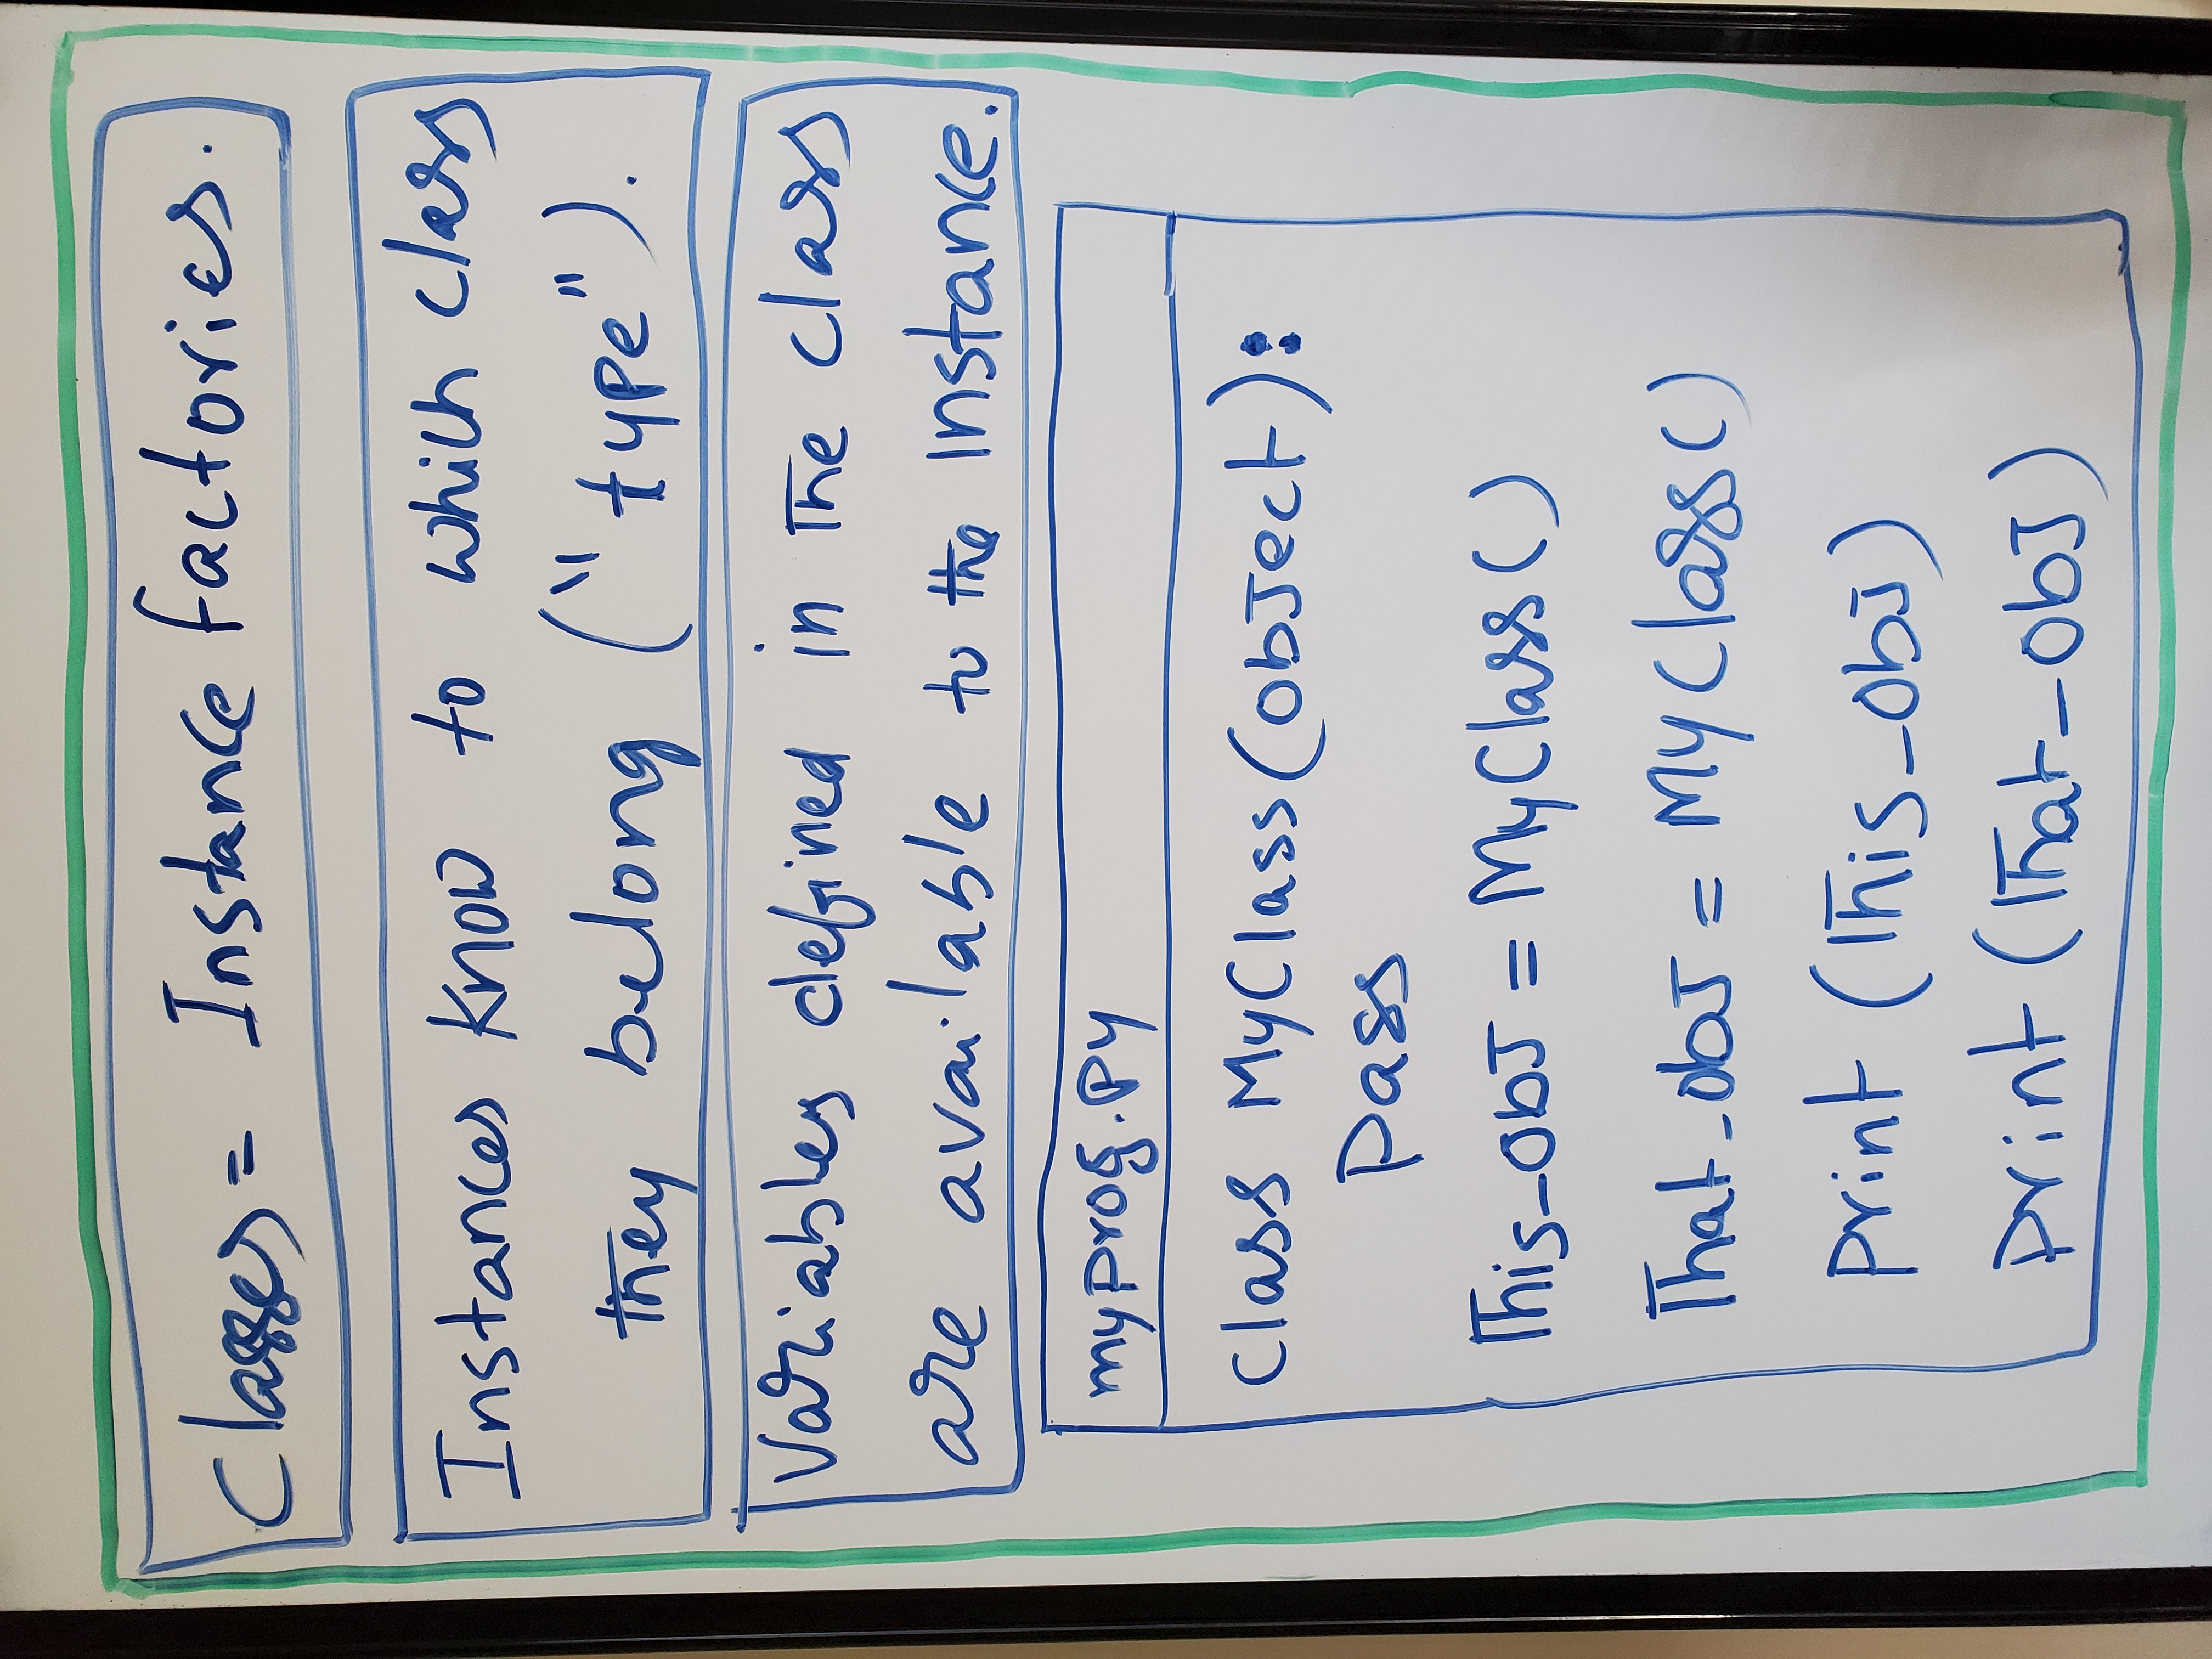 Classes = Instance factories.
Instances Know to which class
they belong ("type").
Variables defined in The class
are available to the Instance.
myprog.py
Class MyClass(obJect):
Pass
This_obJ = MyClass()
That_obJ = MyClass()
print (This_obJ)
print (That_obJ)